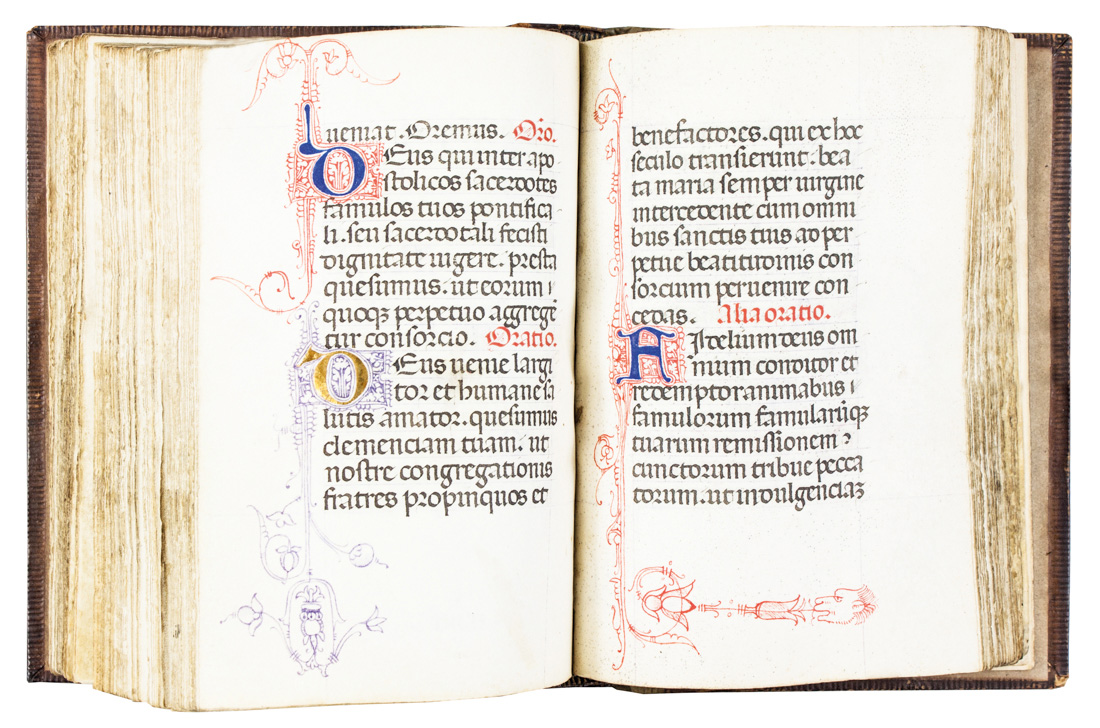 ueniat. Oremus. Oro.
DEus qui inter apo
stolicos sacerdotes
famulos tuos pontifica
li. seu sacerdotali fecisti
dignitate uigere. presta
quesumus. ut eorum
quoqꝫ perpetuo aggrege
tur consorcio. Oratio.
DEus uenie largi
tor et humane sa
lutis amator. quesumus
clemenciam tuam. ut
nostre congregationis
fratres propinquos et
benefactores. qui ex hoc
seculo transierunt. bea
ta maria semper uirgine
intercedente cum omni
bus sanctis tuis ad per
petue beatitudinis con
sorcium peruenire con
cedas. Alia oratio.
FIdelium deus om
nium conditor et
redemptor animabus
famulorum famularūqꝫ
tuarum remissionem
cunctorum tribue pecca
torum. ut indulgenciaꝫ